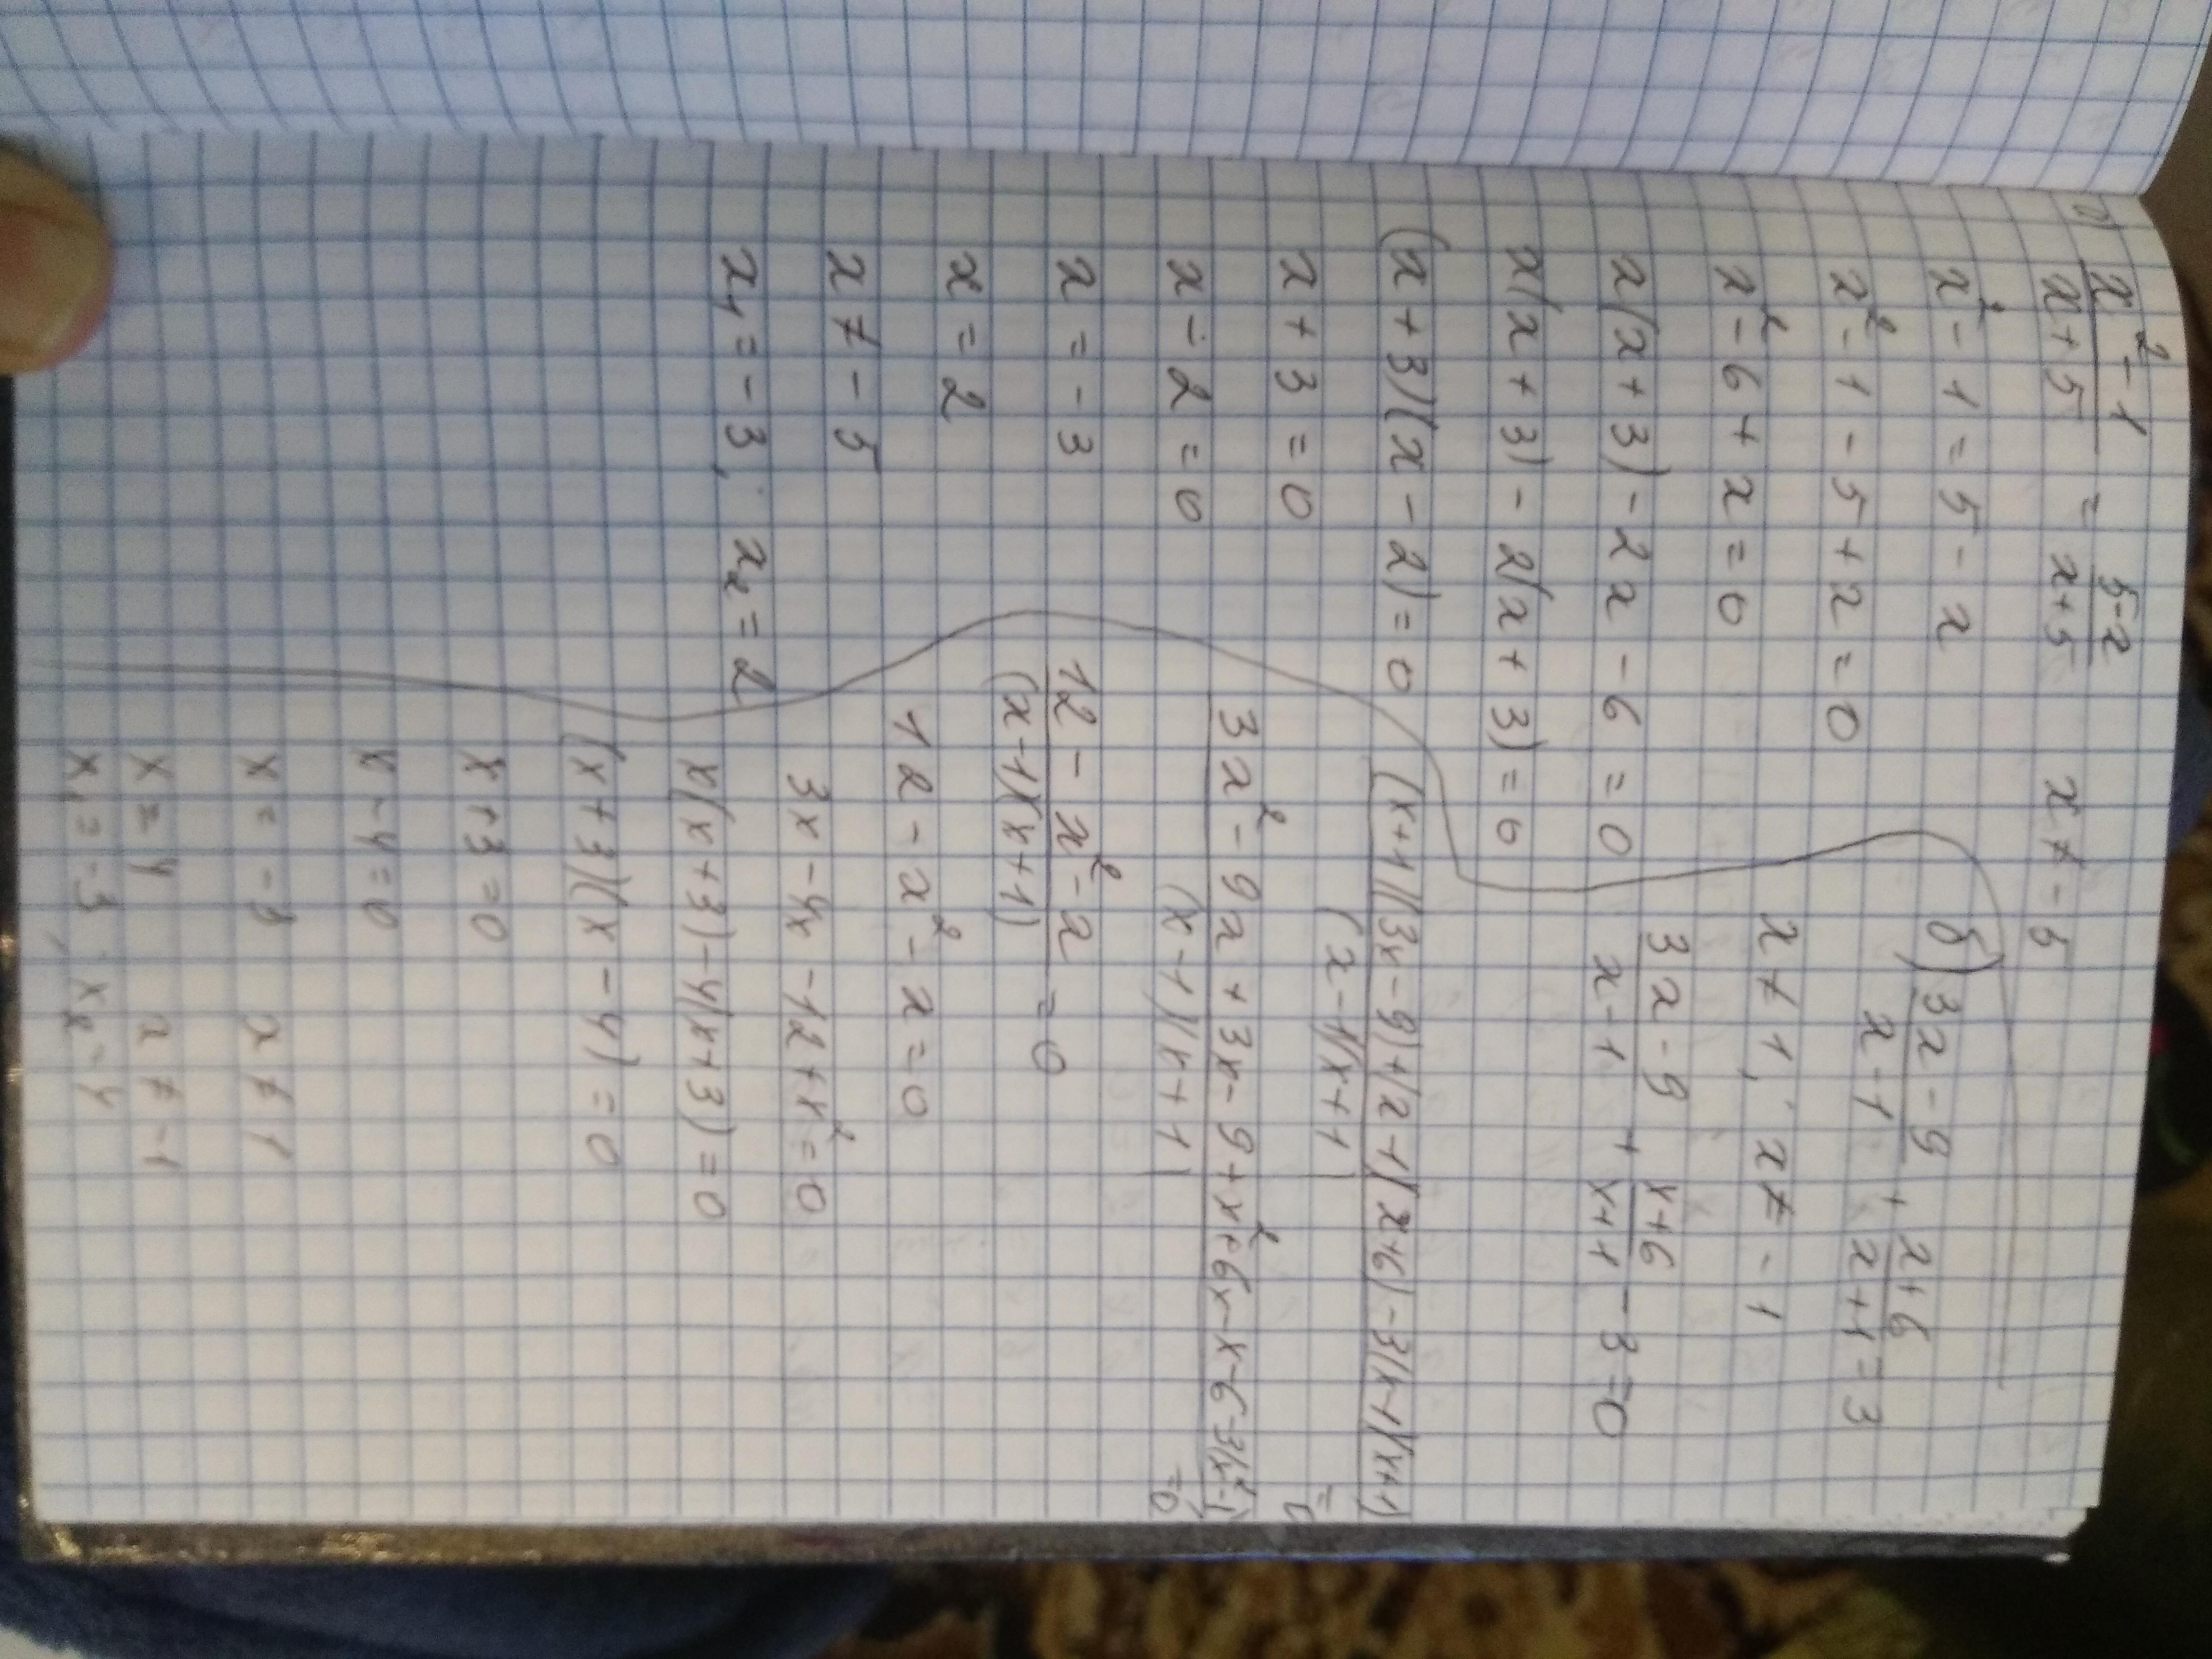 а) x²-1/x+5 = 5-x/x+5   x ≠ -5
x² - 1 = 5 - x
x² - 1 - 5 + x = 0
x² - 6 + x = 0
x(x+3) - 2x - 6 = 0
x(x+3) - 2(x+3) = 0
(x+3)(x-2) = 0
x + 3 = 0
x - 2 = 0
x = -3
x = 2
x ≠ -5
x₁ = -3, x₂ = 2
б) 3x-9/x-1 + x+6/x+1 = 3
x ≠ 1, x ≠ -1
3x-9/x-1 + x+6/x+1 - 3 = 0
(x+1)(3x-9)+(x-1)(x+6)-3(x-1)(x+1)/(x-1)(x+1) = 0
3x²-9x+3x-9+x²+6x-x-6-3(x²-1)/(x-1)(x+1) = 0
12-x²-x/(x-1)(x+1) = 0
12 - x² - x = 0
3x - 4x - 12 + x² = 0
x(x+3) - 4(x+3) = 0
(x+3)(x-4) = 0
x + 3 = 0
x - 4 = 0
x = -3   x ≠ 1
x = 4   x ≠ -1
x₁ = -3, x₂ = 4